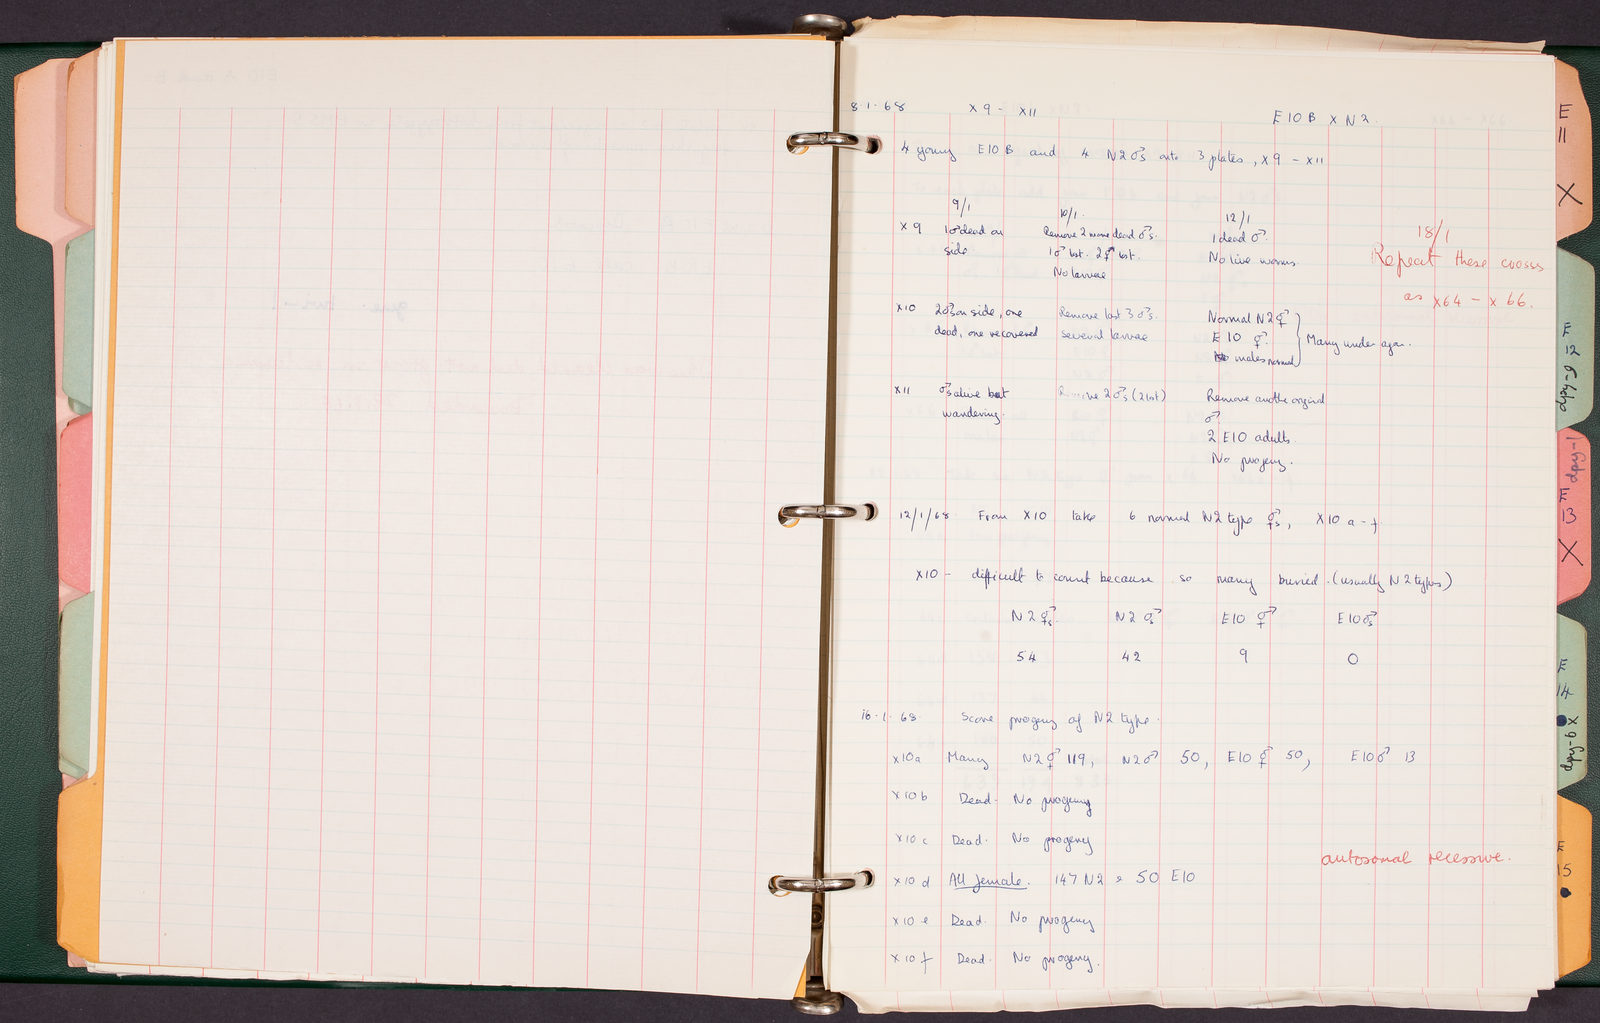 8.1.68 X9 - X11 E10B X N2.
4 young E10B and 4 N2 ♂s onto 3 plates, X9 - X11
9/1 10/1. 12/1
X9 1♂ dead on side Remove 2 more dead ♂s. 1♂ lost. 2⚥ lost. No larvae 1 dead ♂. No live worms.
18/1
Repeat these crosses
as X64 - X66.
X10 2♂s on side, one dead, one recovered Remove last 3 ♂s. several larvae Normal N2 ⚥ E10 ⚥. males normal } Many under agar.
X11 ♂s alive but wandering. Remove 2♂s (2 lost) Remove another original ♂. 2 E10 adults No progeny.
12/1/68. From X10 take 6 normal N2 type ⚥s, X10 a - f.
X10 - difficult to count because so many buried. (usually N2 types)
N2 ⚥s. N2 ♂s E10 ⚥ E10 ♂s
54 42 9 0
16.1.68. Score progeny of N2 type.
X10a Many N2 ⚥ 119, N2♂ 50, E10 ⚥ 50, E10♂ 13
X10b Dead. No progeny
X10c Dead. No progeny
autosomal recessive.
X10d All female. 147 N2 & 50 E10
X10e Dead. No progeny
X10f Dead. No progeny.
E
11
X
E 12
dpy-9
E
13
X
dpy-1
E
14
dpy-6 X
E
15